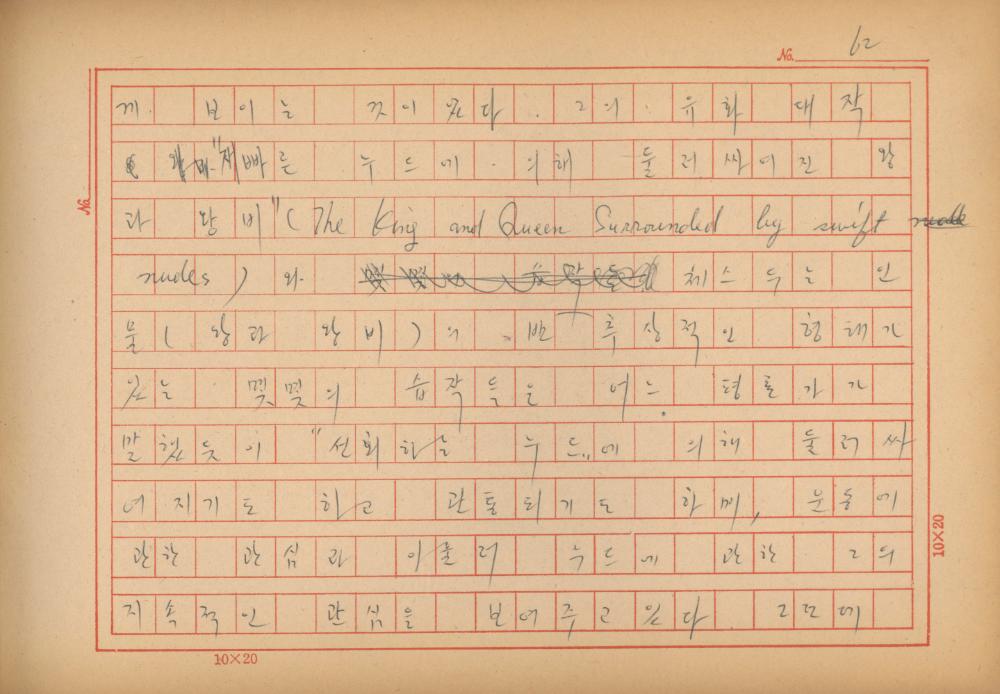 No. 62
께. 보이는 것이 있다. 그의. 유화 대작
"재빠른 누드에 의해 둘러싸여진 왕
과 왕비"(The King and Queen Surrounded by swift
nudes)와 체스두는 인
물(왕과 왕비)의 반 추상적인 형태가
있는 몇몇의 습작들을 어느 평론가가
말했듯이 "선회하는 누드"에 의해 둘러싸
여지기도 하고 관통되기도 하며, 운동에
관한 관심과 아울러 누드에 관한 그의
지속적인 관심을 보여주고 있다. 그런데
No.
10×20
10×20